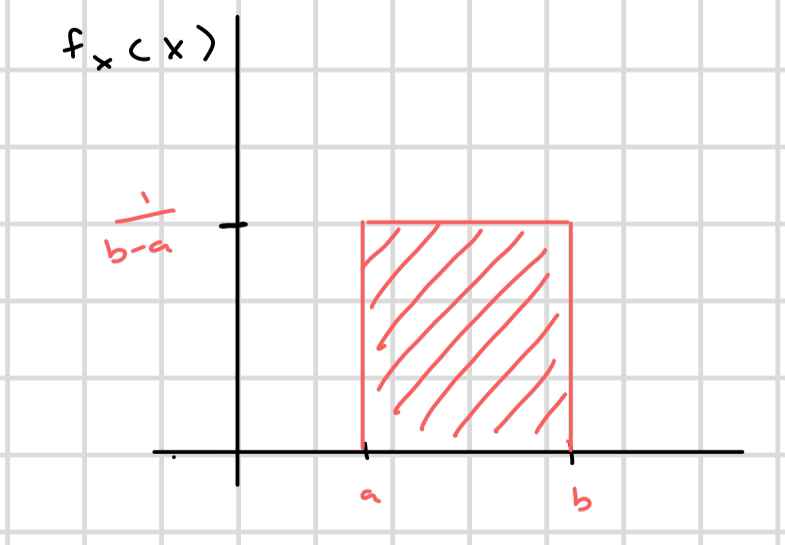 fₓ(x)
1/b-a
a
b